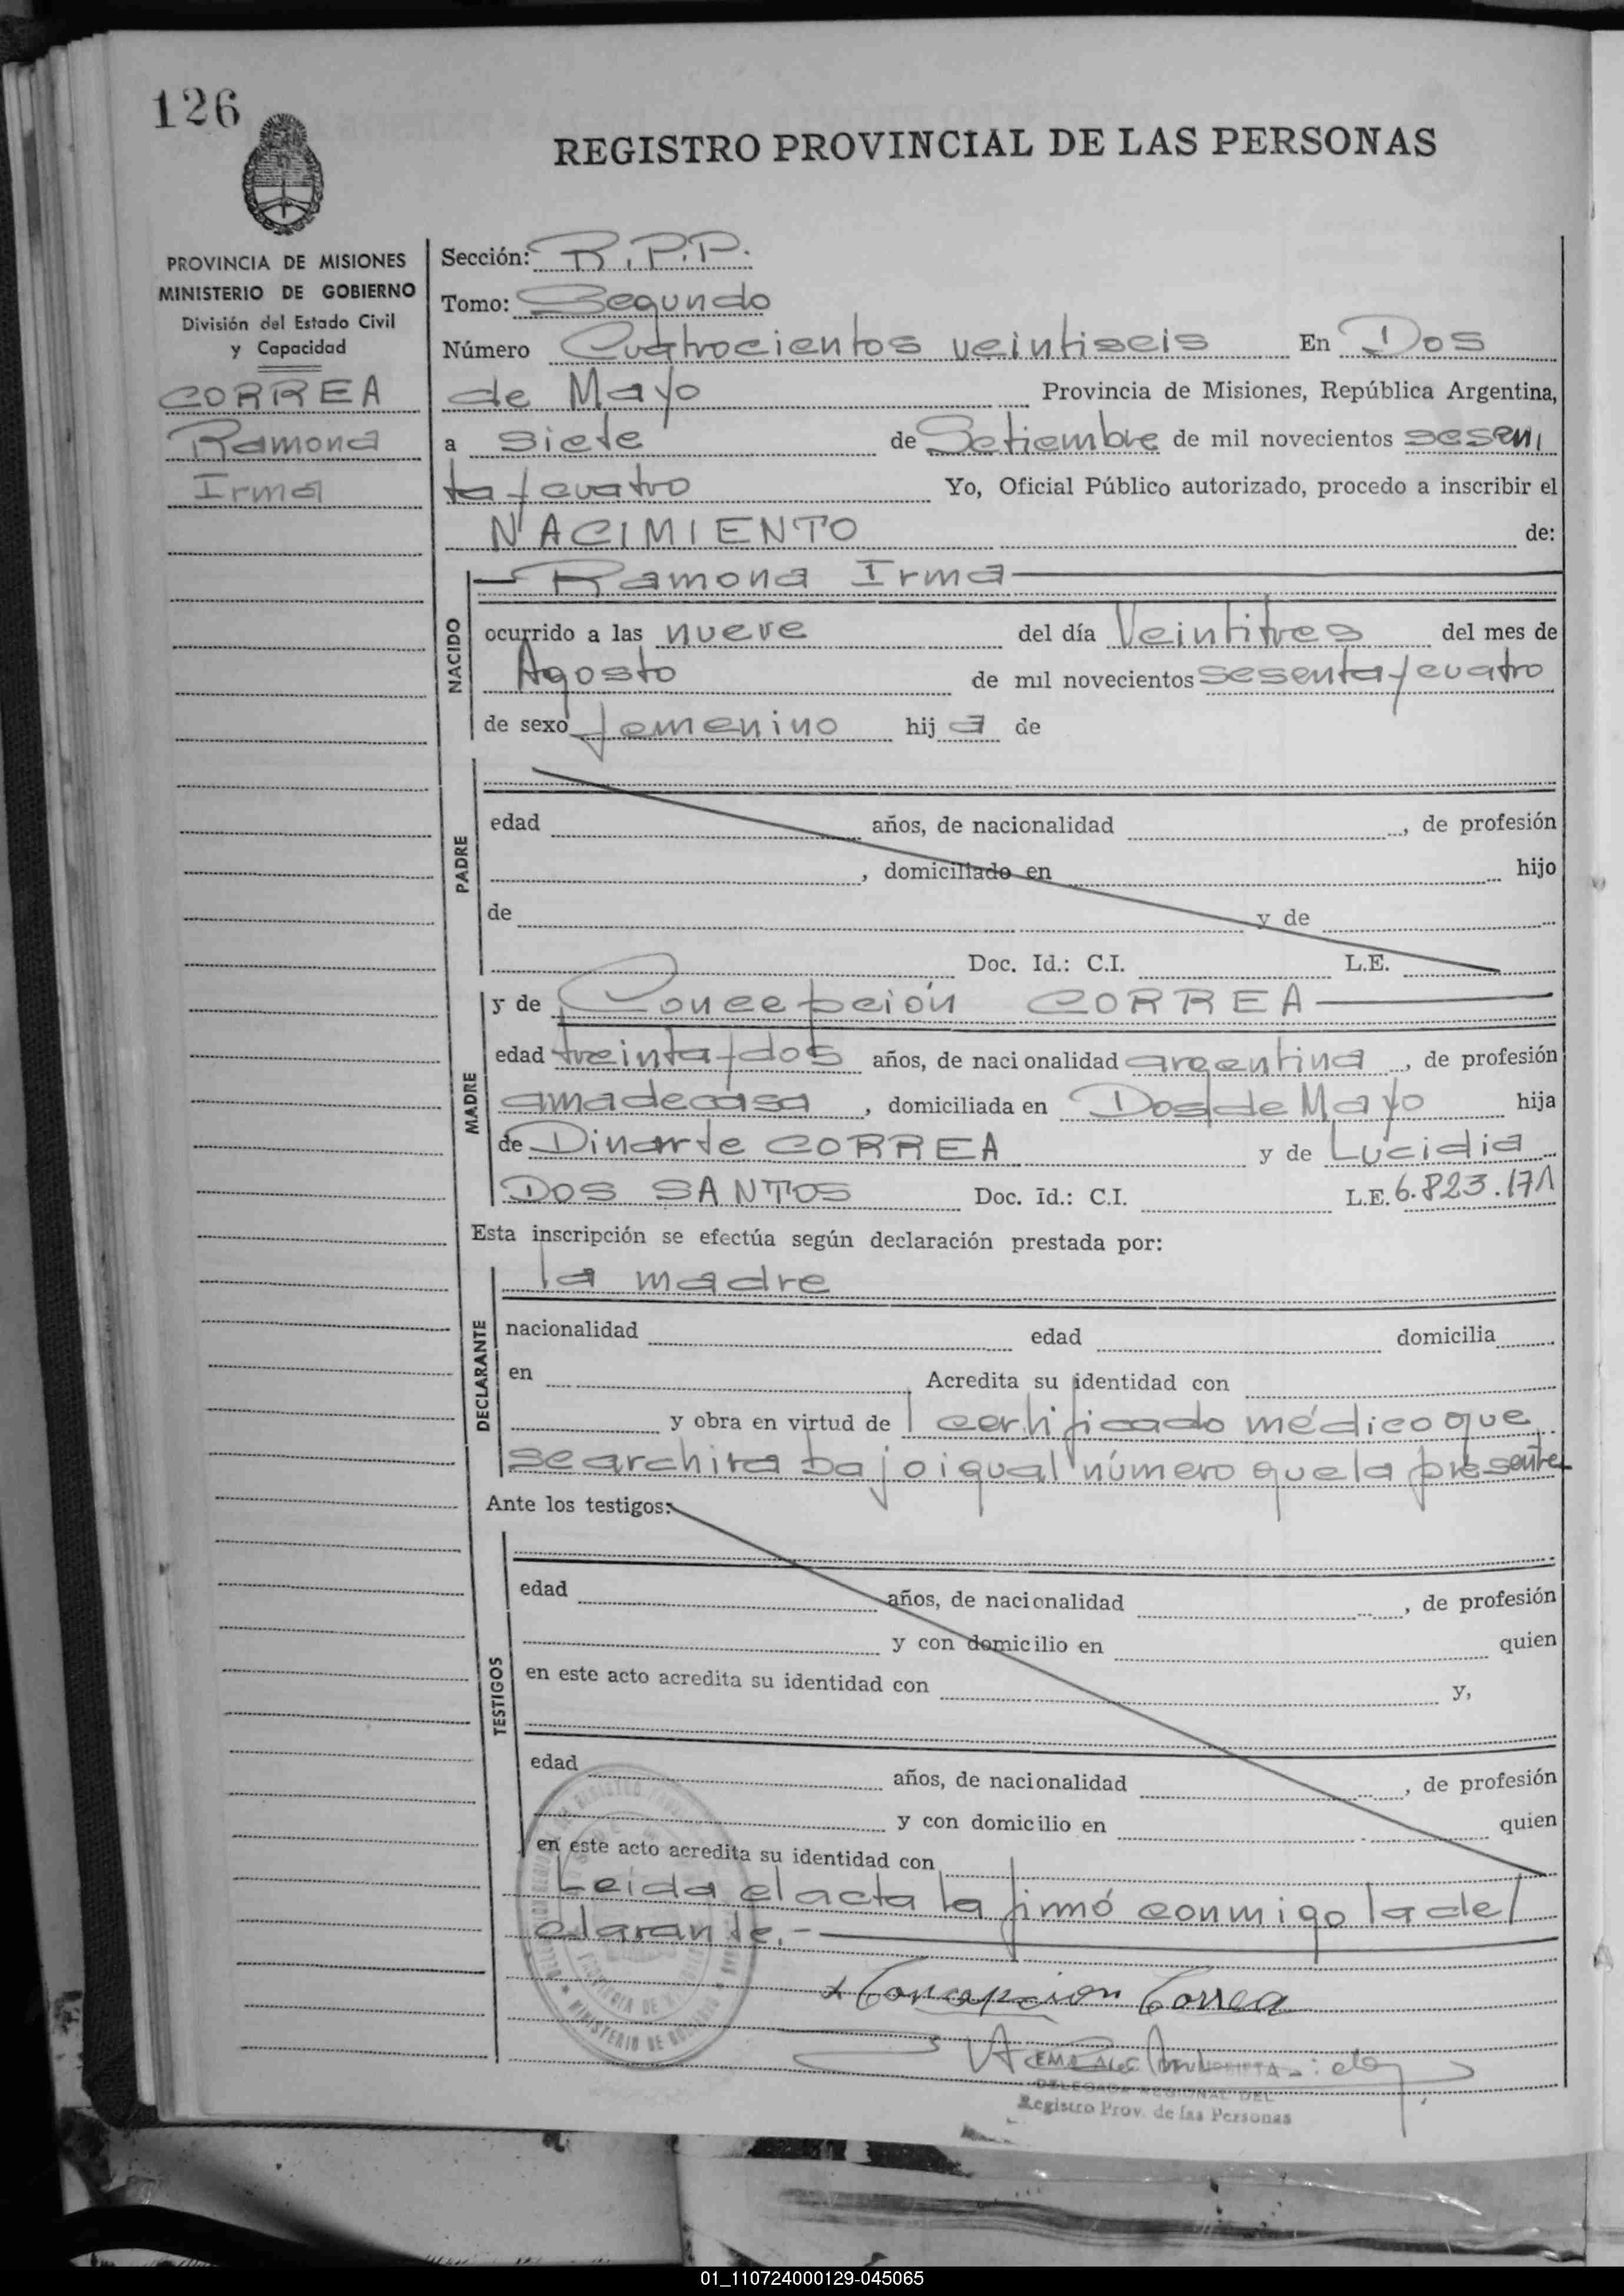 126
REGISTRO PROVINCIAL DE LAS PERSONAS
PROVINCIA DE MISIONES
MINISTERIO DE GOBIERNO
División del Estado Civil
y Capacidad
CORREA
Ramona
Irma
Sección: R.P.P.
Tomo: Segundo
Número Cuatrocientos veintiseis En Dos
de Mayo Provincia de Misiones, República Argentina,
a siete de Setiembre de mil novecientos sesen
ta y cuatro Yo, Oficial Público autorizado, procedo a inscribir el
NACIMIENTO de:
NACIDO
Ramona Irma
ocurrido a las nueve del día Veintitres del mes de
Agosto de mil novecientos sesenta y cuatro
de sexo femenino hija de
PADRE
edad años, de nacionalidad , de profesión
, domiciliado en hijo
de y de
Doc. Id.: C.I. L.E.
MADRE
y de Concepción CORREA
edad treinta y dos años, de nacionalidad argentina, de profesión
ama de casa, domiciliada en Dos de Mayo hija
de Dinarte CORREA y de Lucidia
DOS SANTOS Doc. Id.: C.I. L.E. 6.823.171
Esta inscripción se efectúa según declaración prestada por:
DECLARANTE
la madre
nacionalidad edad domicilia
en Acredita su identidad con
y obra en virtud de certificado médico que
se archiva bajo igual número que la presente
Ante los testigos:
TESTIGOS
edad años, de nacionalidad , de profesión
y con domicilio en quien
en este acto acredita su identidad con y,
edad años, de nacionalidad , de profesión
y con domicilio en quien
en este acto acredita su identidad con
Leída el acta la firmó conmigo la de
clarante.-
Concepcion Correa
DELEGADA REGIONAL DEL
Registro Prov. de las Personas
01_110724000129-045065